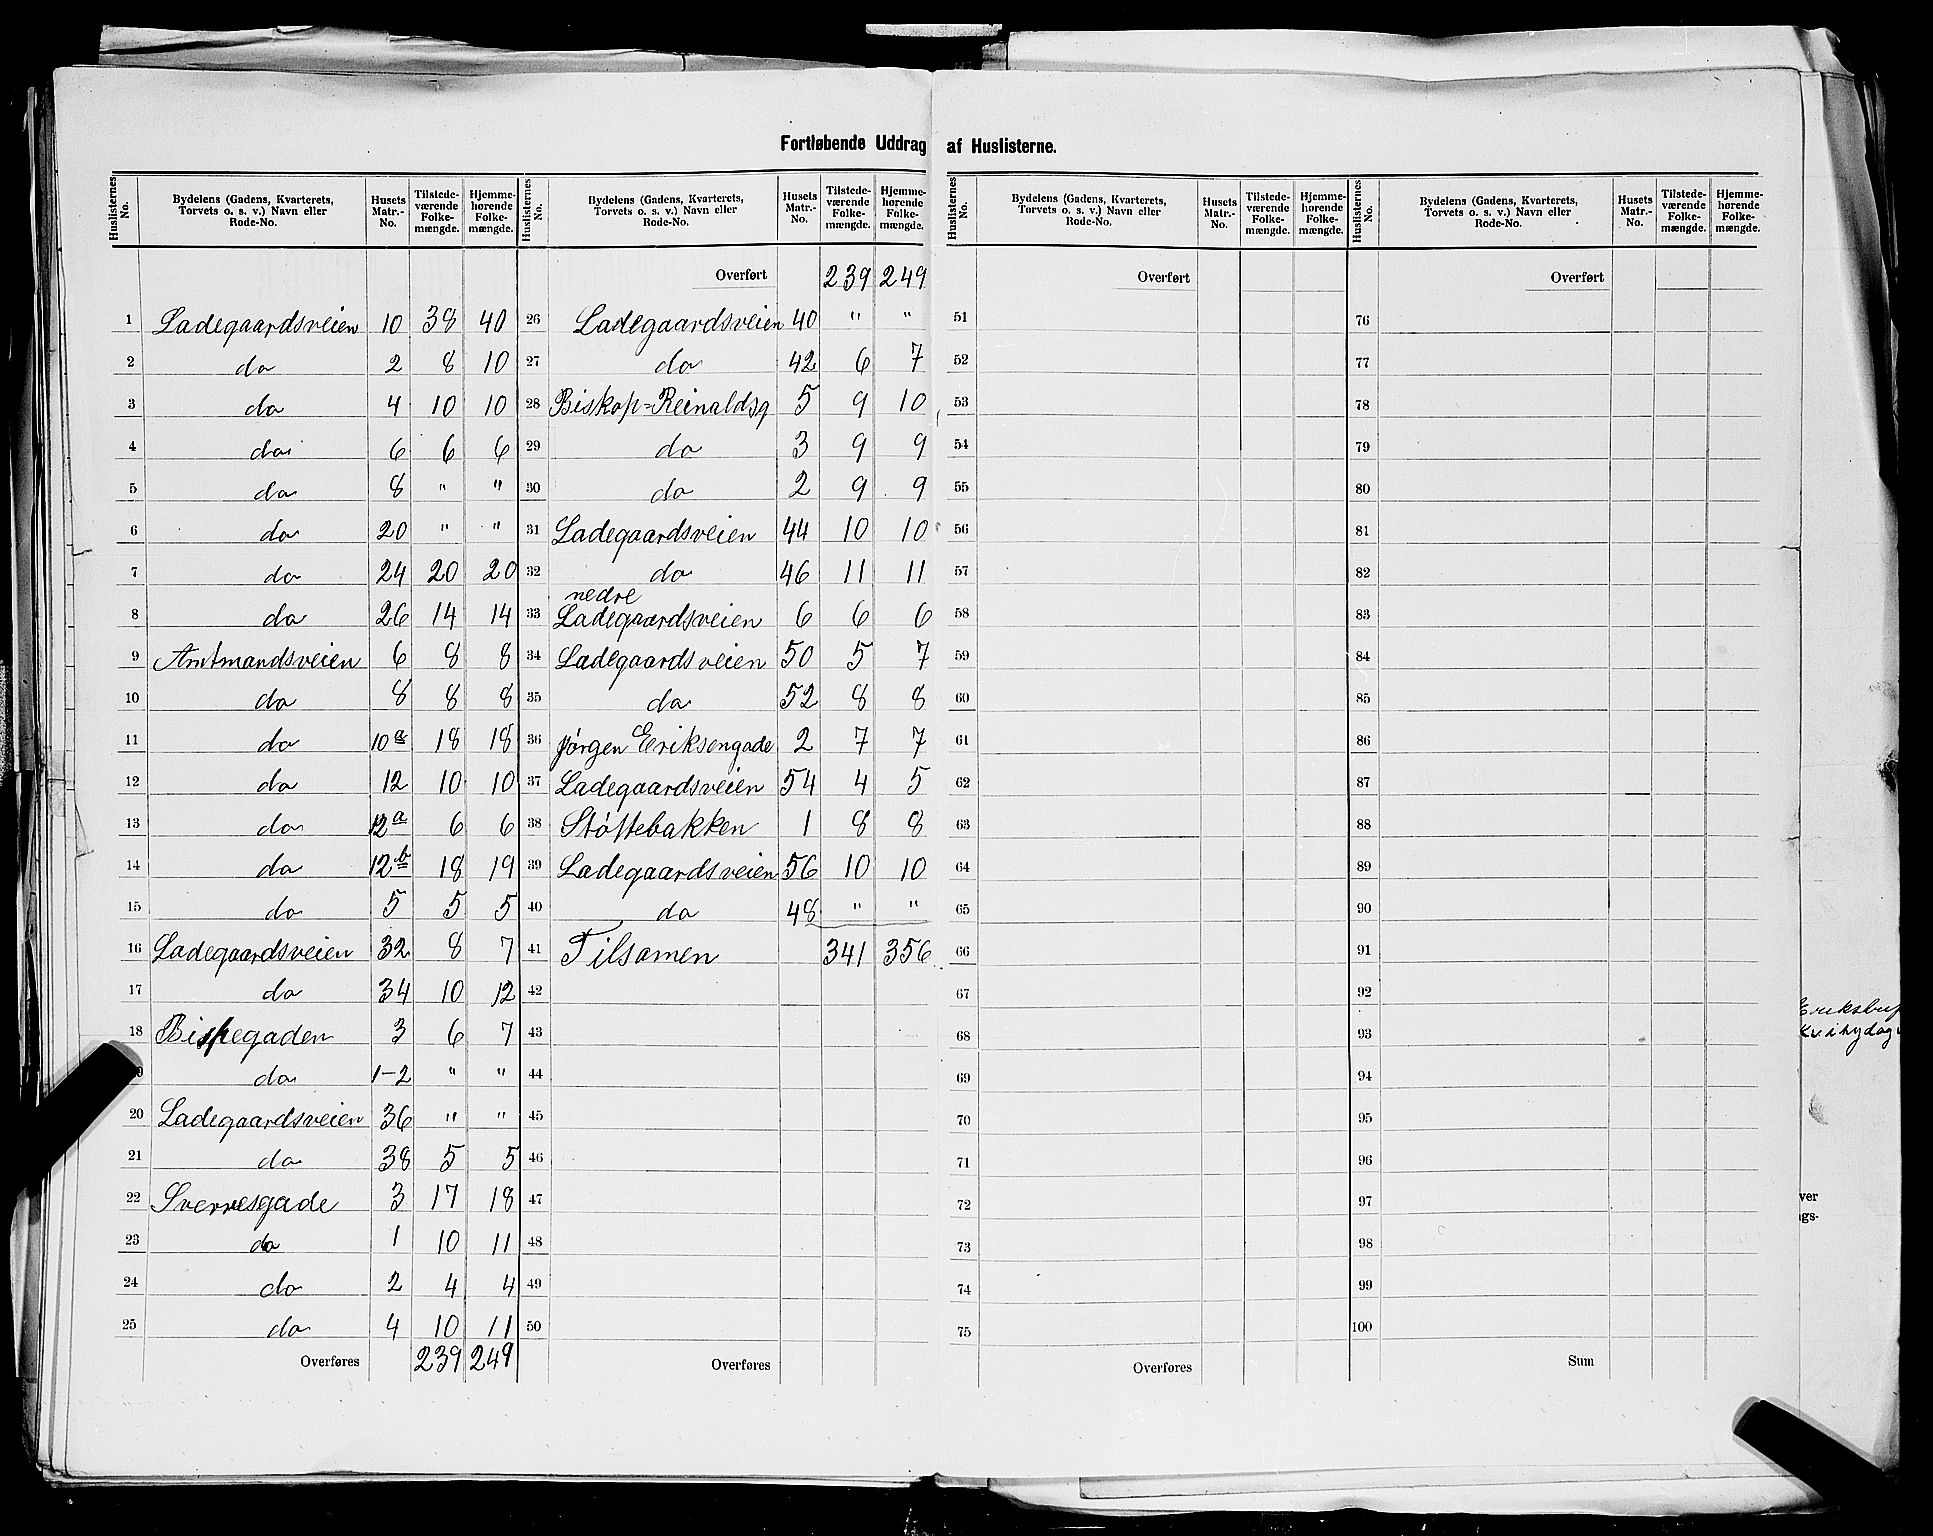 Fortløbende Uddrag af Huslisterne.
Huslisternes No. | Bydelens (Gadens, Kvarterets, Torvets o. s. v.) Navn eller Rode-No. | Husets Matr.-No. | Tilstedeværende Folkemængde. | Hjemmehørende Folkemængde.
1 Ladegaardsveien 10 38 40
2 do 2 8 10
3 do 4 10 10
4 do 6 6 6
5 do 8 " "
6 do 20 " "
7 do 24 20 20
8 do 26 14 14
9 Amtmandsveien 6 8 8
10 do 8 8 8
11 do 10a 18 18
12 do 12 10 10
13 do 12a 6 6
14 do 12b 18 19
15 do 5 5 5
16 Ladegaardsveien 32 8 7
17 do 34 10 12
18 Bispegaden 3 6 7
9 do 1-2 " "
20 Ladegaardsveien 36 " "
21 do 38 5 5
22 Sverresgade 3 17 18
23 do 1 10 11
24 do 2 4 4
25 do 4 10 11
Overføres 239 249
Huslisternes No. | Bydelens (Gadens, Kvarterets, Torvets o. s. v.) Navn eller Rode-No. | Husets Matr.-No. | Tilstedeværende Folkemængde. | Hjemmehørende Folkemængde.
Overført 239 249
26 Ladegaardsveien 40 " "
27 do 42 6 7
28 Biskop=Reinaldsg 5 9 10
29 do 3 9 9
30 do 2 9 9
31 Ladegaardsveien 44 10 10
32 do 46 11 11
nedre
33 Ladegaardsveien 6 6 6
34 Ladegaardsveien 50 5 7
35 do 52 8 8
36 Jørgen Eriksengade 2 7 7
37 Ladegaardsveien 54 4 5
38 Støttebakken 1 8 8
39 Ladegaardsveien 56 10 10
40 do 48 " "
41 Tilsamen 341 356
42
43
44
45
46
47
48
49
50
Overføres
Huslisternes No. | Bydelens (Gadens, Kvarterets, Torvets o. s. v.) Navn eller Rode-No. | Husets Matr.-No. | Tilstedeværende Folkemængde. | Hjemmehørende Folkemængde.
Overført
51
52
53
54
55
56
57
58
59
60
61
62
63
64
65
66
67
68
69
70
71
72
73
74
75
Overføres
Huslisternes No. | Bydelens (Gadens, Kvarterets, Torvets o. s. v.) Navn eller Rode-No. | Husets Matr.-No. | Tilstedeværende Folkemængde. | Hjemmehørende Folkemængde.
Overført
76
77
78
79
80
81
82
83
84
85
86
87
88
89
90
91
92
93
94
95
96
97
98
99
100
Sum
ver
gs-